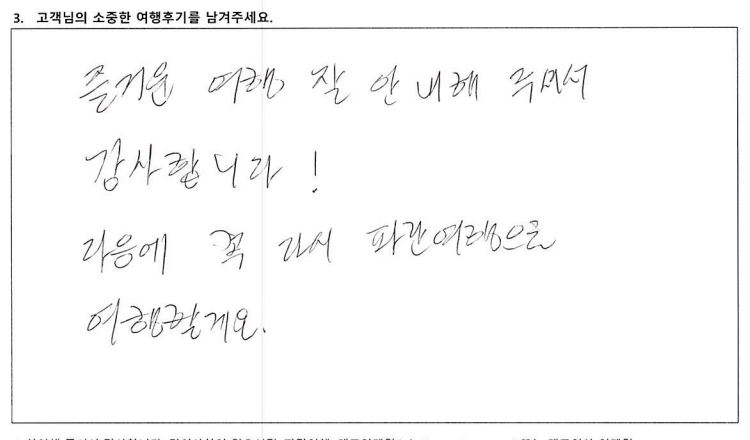 3. 고객님의 소중한 여행후기를 남겨주세요.
즐거운 여행 잘 안내해 주셔서
감사합니다!
다음에 꼭 다시 파란여행으로
여행할게요.